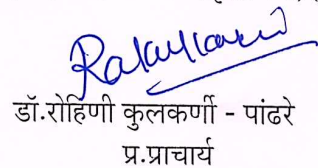 डॉ.रोहिणी कुलकर्णी - पांढरे
प्र.प्राचार्य